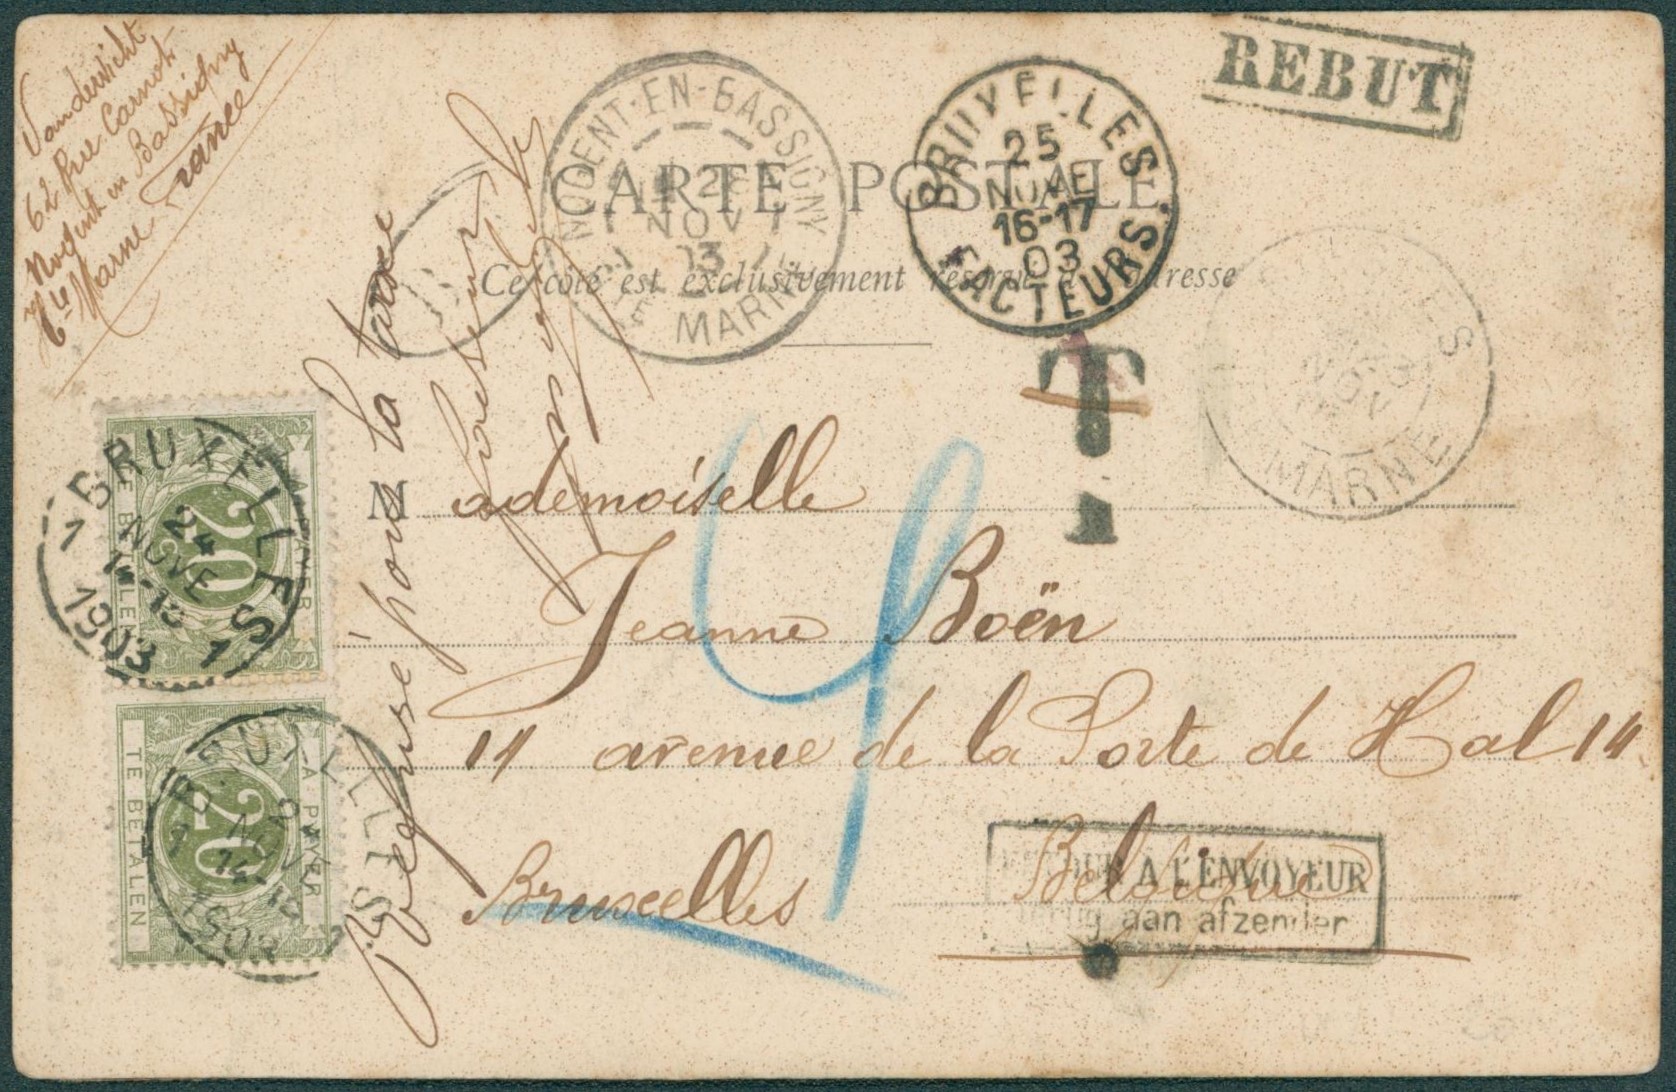 Vandervicht
62 Rue Carnot
Nogent en Bassigny
Hte Marne France
REBUT
NOGENT-EN-BASSIGNY
NOV
MARNE
BRUXELLES
25
NOVE
16-17
03
FACTEURS.
CARTE POSTALE
Ce côté est exclusivement réservé à l'adresse
T
MARNE
NOV
Refusé pour la taxe
4
Mademoiselle
Jeanne Boën
14 avenue de la Porte de Hal 14
Bruxelles Belgique
A PAYER
20
TE BETALEN
BRUXELLES
24
NOVE
1903
1 1
A PAYER
20
TE BETALEN
BRUXELLES
NOVE
RETOUR A L'ENVOYEUR
terug aan afzender